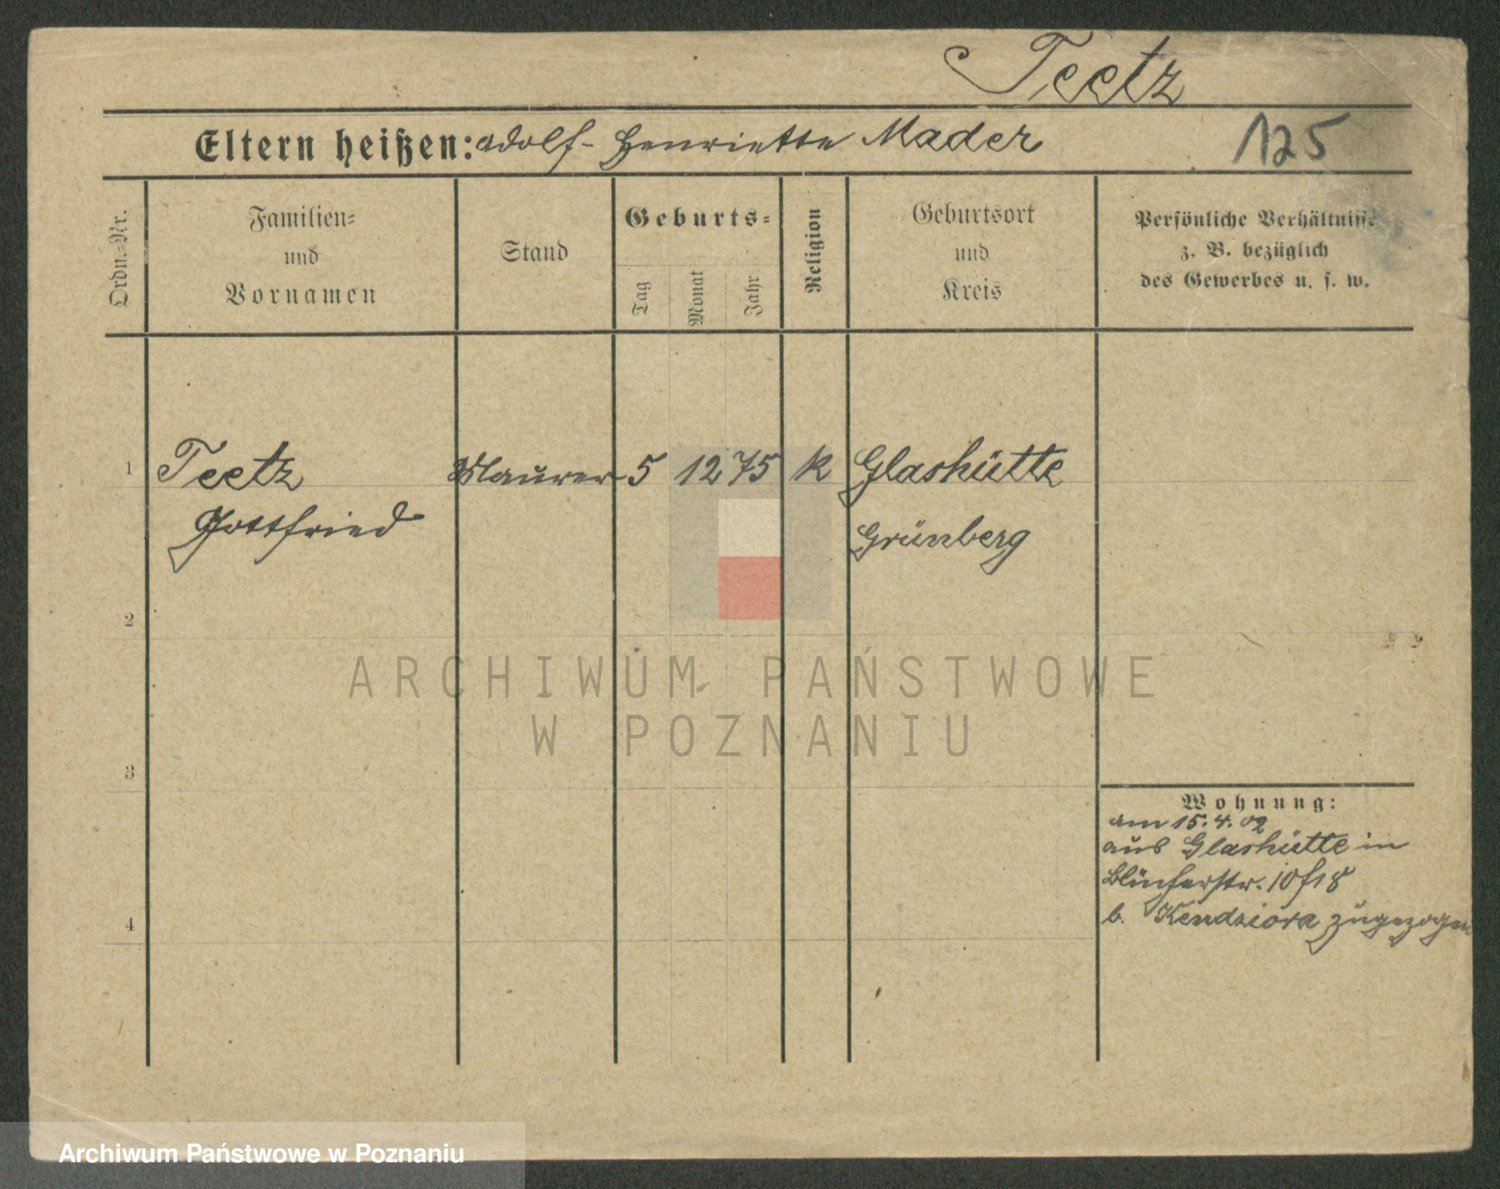 Teetz
Eltern heißen: Adolf - Henriette Mader
125
Ordn.-Nr.
Familien-
und
Vornamen
Stand
Geburts-
Tag
Monat
Jahr
Religion
Geburtsort
und
Kreis
Persönliche Verhältnisse
z. B. bezüglich
des Gewerbes u. s. w.
1 Teetz Maurer 5 12 75 k Glashütte
Gottfried Grünberg
2
ARCHIWUM PAŃSTWOWE
W POZNANIU
3
Wohnung:
am 15.4.02
aus Glashütte in
Blücherstr. 10
4
b. Kendziora zugezogen
Archiwum Państwowe w Poznaniu